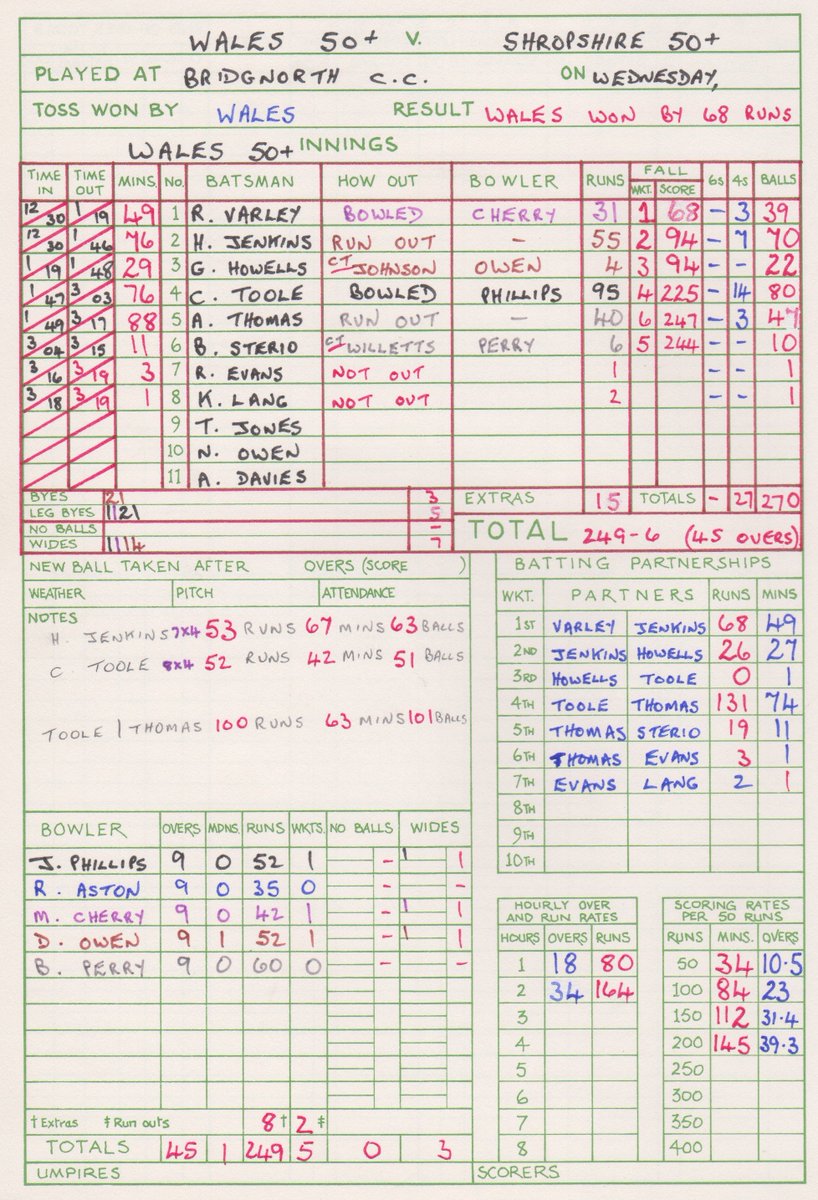 WALES 50+ V. SHROPSHIRE 50+
PLAYED AT BRIDGNORTH C.C. ON WEDNESDAY,
TOSS WON BY WALES RESULT WALES WON BY 68 RUNS
WALES 50+ INNINGS
TIME IN TIME OUT MINS. No. BATSMAN HOW OUT BOWLER RUNS FALL WKT. SCORE 6s 4s BALLS
12 30 1 19 49 1 R. VARLEY BOWLED CHERRY 31 1 68 – 3 39
12 30 1 46 76 2 H. JENKINS RUN OUT – 55 2 94 – 7 70
1 19 1 48 29 3 G. HOWELLS CT JOHNSON OWEN 4 3 94 – – 22
1 47 3 03 76 4 C. TOOLE BOWLED PHILLIPS 95 4 225 – 14 80
1 49 3 17 88 5 A. THOMAS RUN OUT – 40 6 247 – 3 47
3 04 3 15 11 6 B. STERIO CT WILLETTS PERRY 6 5 244 – – 10
3 16 3 19 3 7 R. EVANS NOT OUT 1 – – 1
3 18 3 19 1 8 K. LANG NOT OUT 2 – – 1
9 T. JONES
10 N. OWEN
11 A. DAVIES
BYES 21 3 EXTRAS 15 TOTALS - 27 270
LEG BYES 1121 5
NO BALLS – TOTAL 249-6 (45 OVERS)
WIDES 1114 7
NEW BALL TAKEN AFTER OVERS (SCORE )
WEATHER PITCH ATTENDANCE
NOTES
H. JENKINS 7x4 53 RUNS 67 MINS 63 BALLS
C TOOLE 8x4 52 RUNS 42 MINS 51 BALLS
TOOLE / THOMAS 100 RUNS 63 MINS 101 BALLS
BATTING PARTNERSHIPS
WKT. PARTNERS RUNS MINS
1ST VARLEY JENKINS 68 49
2ND JENKINS HOWELLS 26 27
3RD HOWELLS TOOLE 0 1
4TH TOOLE THOMAS 131 74
5TH THOMAS STERIO 19 11
6TH THOMAS EVANS 3 1
7TH EVANS LANG 2 1
8TH
9TH
10TH
BOWLER OVERS MDNS. RUNS WKTS. NO BALLS WIDES
J. PHILLIPS 9 0 52 1 – 1 1
R. ASTON 9 0 35 0 – –
M. CHERRY 9 0 42 1 – 1 1
D. OWEN 9 1 52 1 – 1 1
B. PERRY 9 0 60 0 – –
† Extras ‡ Run outs 8† 2‡
TOTALS 45 1 249 5 0 3
UMPIRES
HOURLY OVER AND RUN RATES
HOURS OVERS RUNS
1 18 80
2 34 164
3
4
5
6
7
8
SCORING RATES PER 50 RUNS
RUNS MINS. OVERS
50 34 10.5
100 84 23
150 112 31.4
200 145 39.3
250
300
350
400
SCORERS